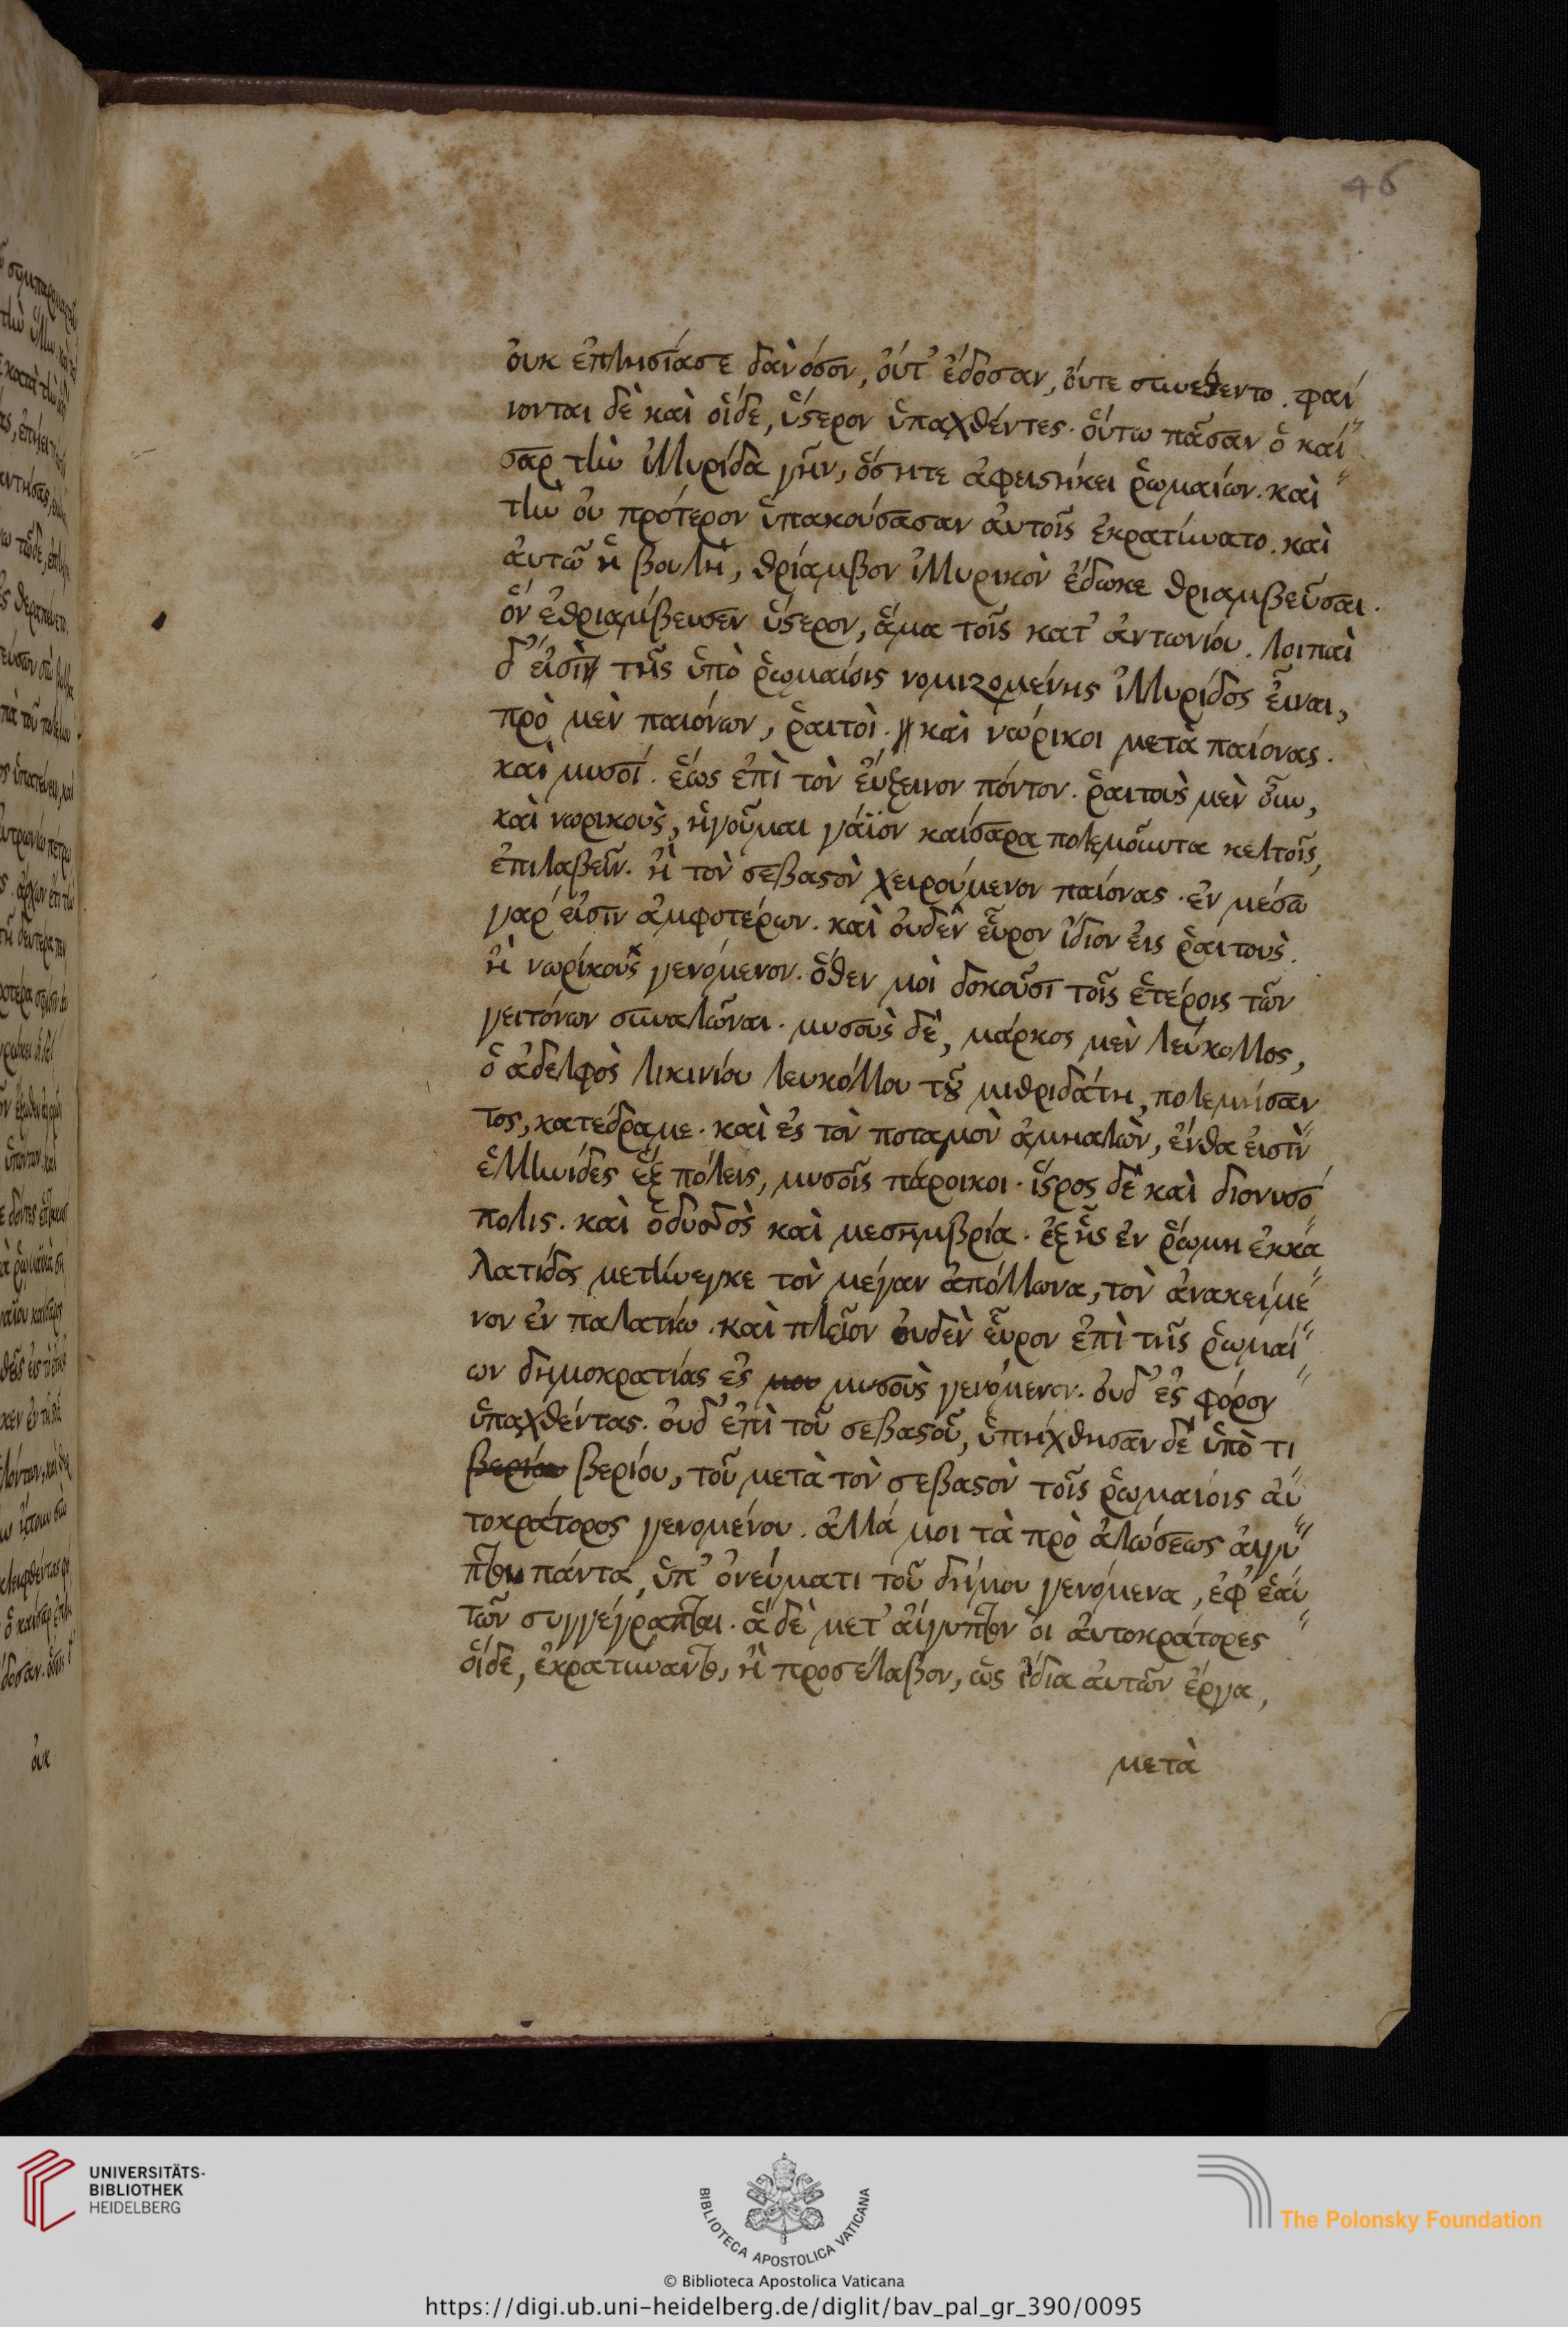 46
ὀυκ ἐπλησίασε δανόσον, ὀύτ' ἔδοσαν, ὄυτε συνεθεντο. φαί
νονται δὲ καὶ οἵδε, ὕςερον ὑπαχθέντες. ὅυτω πᾶσαν ὁ καί
σαρ τὴν ἰλλυρίδα γῆν, ὅσητε ἀφειςήκει ῥωμαίων. καὶ
τὴν ὀυ πρότερον ὑπακούσασαν ἀυτοῖς ἐκρατύνατο. καὶ
ἀυτῶ ἡ βουλὴ, θρίαμβον ἰλλυρικὸν ἔδωκε θριαμβεῦσαι.
ὃν ἐθριάμβευσεν ὕςερον, ἅμα τοῖς κατ' ἀντωνίου. λοιπαὶ
δ' ἐισὶ τῆς ὑπὸ ῥωμαίοις νομιζομένης ἰλλυρίδος εἶναι,
πρὸ μὲν παιόνων, ῥαιτοὶ. καὶ νώρικοι μετὰ παίονας.
καὶ μυσοί. ἕως ἐπὶ τὸν ἔυξεινον πόντον. ῥαιτοὺς μὲν οὖν,
καὶ νωρικοὺς, ἡγοῦμαι γάϊον καίσαρα πολεμοῦντα κελτοῖς,
ἐπιλαβεῖν. ἢ τὸν σεβαςὸν χειρούμενον παίονας. ἐν μέσω
γαρ ἐισιν ἀμφοτέρων. καὶ ὀυδὲν εὗρον ἴδιον ἐις ῥαιτοὺς.
ἢ νωρίκοὺς γενόμενον. ὅθεν μοὶ δοκοῦσι τοῖς ἑτέροις τῶν
γειτόνων συναλῶναι. μυσοὺς δὲ, μάρκος μὲν λεύκολλος,
ὁ ἀδελφὸς λικινίου λευκόλλου τοῦ μιθριδάτη, πολεμήσαν
τος, κατέδραμε. καὶ ἐς τὸν ποταμὸν ἀμηαλὼν, ἔνθα ἐισὶν
ἑλληνίδες ἓξ πόλεις, μυσοῖς πάροικοι. ἵςρος δὲ καὶ διονυσό
πολις. καὶ ὁδυσὸς καὶ μεσημβρία. ἐξ ἧς ἐν ῥώμη ἐκκα
λατίδος μετήνεγκε τὸν μέγαν ἀπόλλωνα, τὸν ἀνακείμε
νον ἐν παλατίω. καὶ πλεῖον ὀυδὲν εὗρον ἐπὶ τῆς ῥωμαί
ων δημοκρατίας ἐς μου μυσοὺς γενόμενον. ὀυδ' ἐς φόρον
ὑπαχθέντας. ὀυδ' ἐπὶ τοῦ σεβαςοῦ, ὑπήχθησαν δὲ ὑπὸ τι
βερίου βερίου, τοῦ μετὰ τὸν σεβαςὸν τοῖς ῥωμαίοις ἀυ
τοκράτορος γενομένου. ἀλλά μοι τὰ πρὸ ἁλώσεως ἀιγύ
πτου πάντα, ὑπ' ὀνεύματι τοῦ δήμου γενόμενα, ἐφ' ἑαυ
τῶν συγγέγραπται. ἃ δὲ μετ' ἀίγυπτον ὁι ἀυτοκράτορες
οἵδε, ἐκρατύναντο, ἢ προσέλαβον, ὡς ἴδια ἀυτῶν ἔργα,
μετὰ
ὀυκ
UNIVERSITÄTS-
BIBLIOTHEK
HEIDELBERG
BIBLIOTECA APOSTOLICA VATICANA
The Polonsky Foundation
© Biblioteca Apostolica Vaticana
https://digi.ub.uni-heidelberg.de/diglit/bav_pal_gr_390/0095